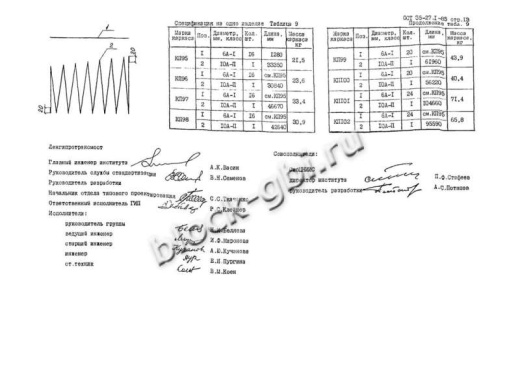 Спецификация на одно изделие Таблица 9
ОСТ 35-27.1-85 стр.19
Продолжение табл. 9
1
2
20
20
Марка каркаса Поз. Диаметр, мм, класс Кол. шт. Длина, мм Масса каркаса кг
КП95 1 6А-I 16 1280 21,5
2 10А-II 1 23350
КП96 1 6А-I 16 см.КП95 23,6
2 10А-II 1
КП97 1 6А-I 16 см.КП95 33,4
2 10А-II 1 46670
КП98 1 6А-I 16 см.КП95 30,9
2 10А-II 1 42640
Марка каркаса Поз. Диаметр, мм, класс Кол. шт. Длина, мм Масса каркаса кг
КП99 1 6А-I 20 см.КП95 43,9
2 10А-II 1 61960
КП100 1 6А-I 20 см.КП95 40,4
2 10А-II 1 56220
КП101 1 6А-I 24 см.КП95 71,4
2 10А-II 1 104660
КП102 1 6А-I 24 см.КП95 65,8
2 10А-II 1 95590
Ленгипротрансмост
Главный инженер института А.К.Васин
Руководитель службы стандартизации В.Н.Семенов
Руководитель разработки
Начальник отдела типового проектирования С.С.Ткаченко
Ответственный исполнитель ГИП Р.С.Клейнер
Исполнители:
руководитель группы
ведущий инженер И.Ф.Миронова
старший инженер А.Ю.Кучанова
инженер И.Н.Пургина
ст.техник В.М.Коен
Соисполнители:
института П.Ф.Стофеев
Руководитель разработки А.С.Потапов
block-gbi.ru